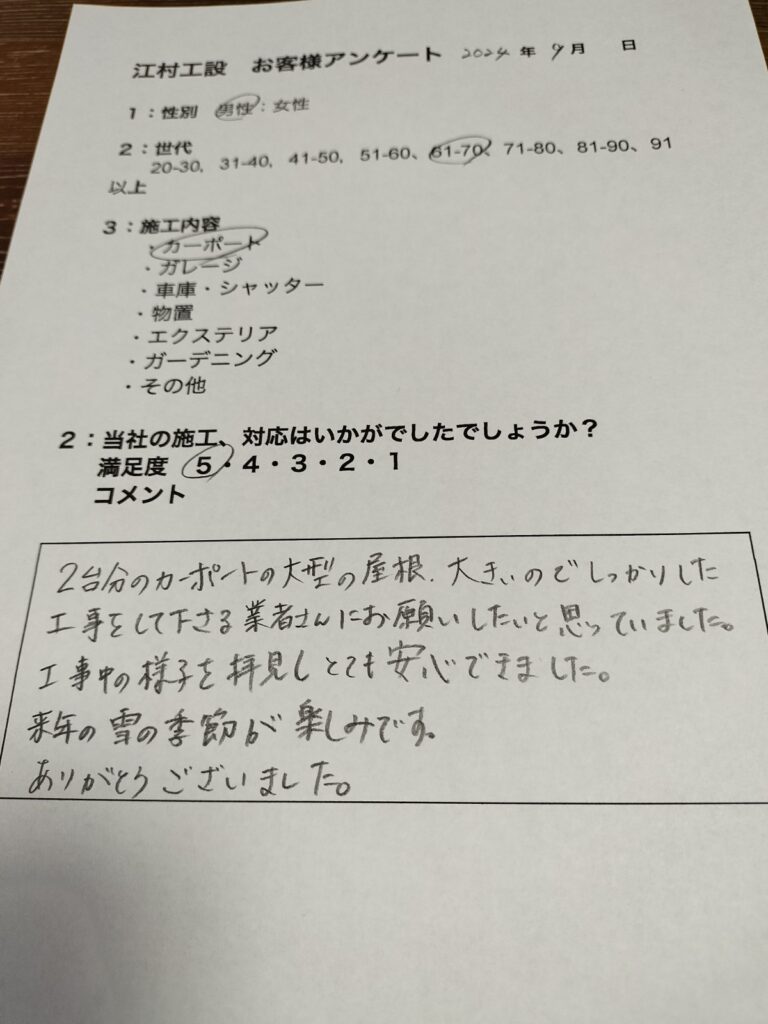 江村工設 お客様アンケート 2024年 9月 日
1：性別 男性：女性
2：世代
20-30, 31-40, 41-50, 51-60、61-70、71-80、81-90、91
以上
3：施工内容
・カーポート
・ガレージ
・車庫・シャッター
・物置
・エクステリア
・ガーデニング
・その他
2：当社の施工、対応はいかがでしたでしょうか？
満足度 5・4・3・2・1
コメント
2台分のカーポートの大型の屋根．大きいのでしっかりした
工事をして下さる業者さんにお願いしたいと思っていました。
工事中の様子を拝見しとても安心できました。
来年の雪の季節が楽しみです。
ありがとうございました。